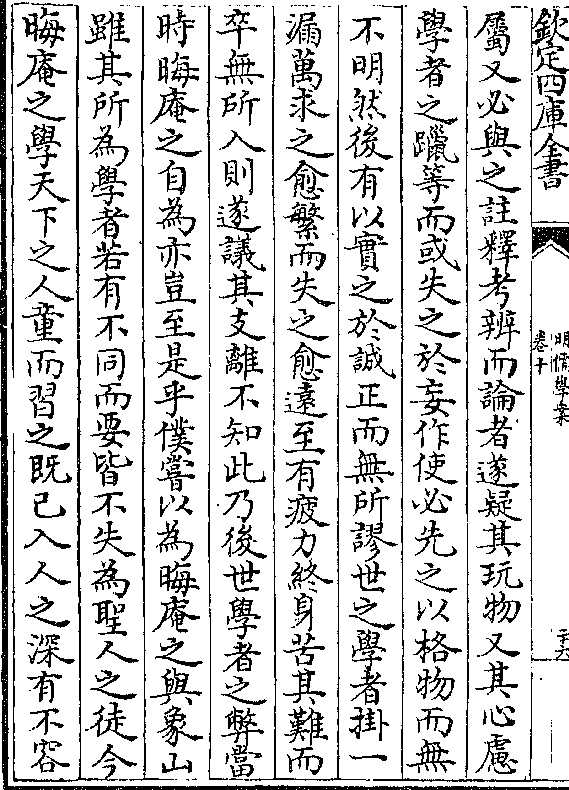 欽定四庫全書
明儒學案
卷十
屬又必與之註釋考辨而論者遂疑其玩物又其心慮
學者之躐等而或失之於妄作使必先之以格物而無
不明然後有以實之於誠正而無所謬世之學者掛一
漏萬求之愈繁而失之愈遠至有疲力終身苦其難而
卒無所入則遂議其支離不知此乃後世學者之弊當
時晦庵之自為亦豈至是乎僕嘗以為晦庵之與象山
雖其所為學者若有不同而要皆不失為聖人之徒今
晦庵之學天下之人童而習之既已入人之深有不容